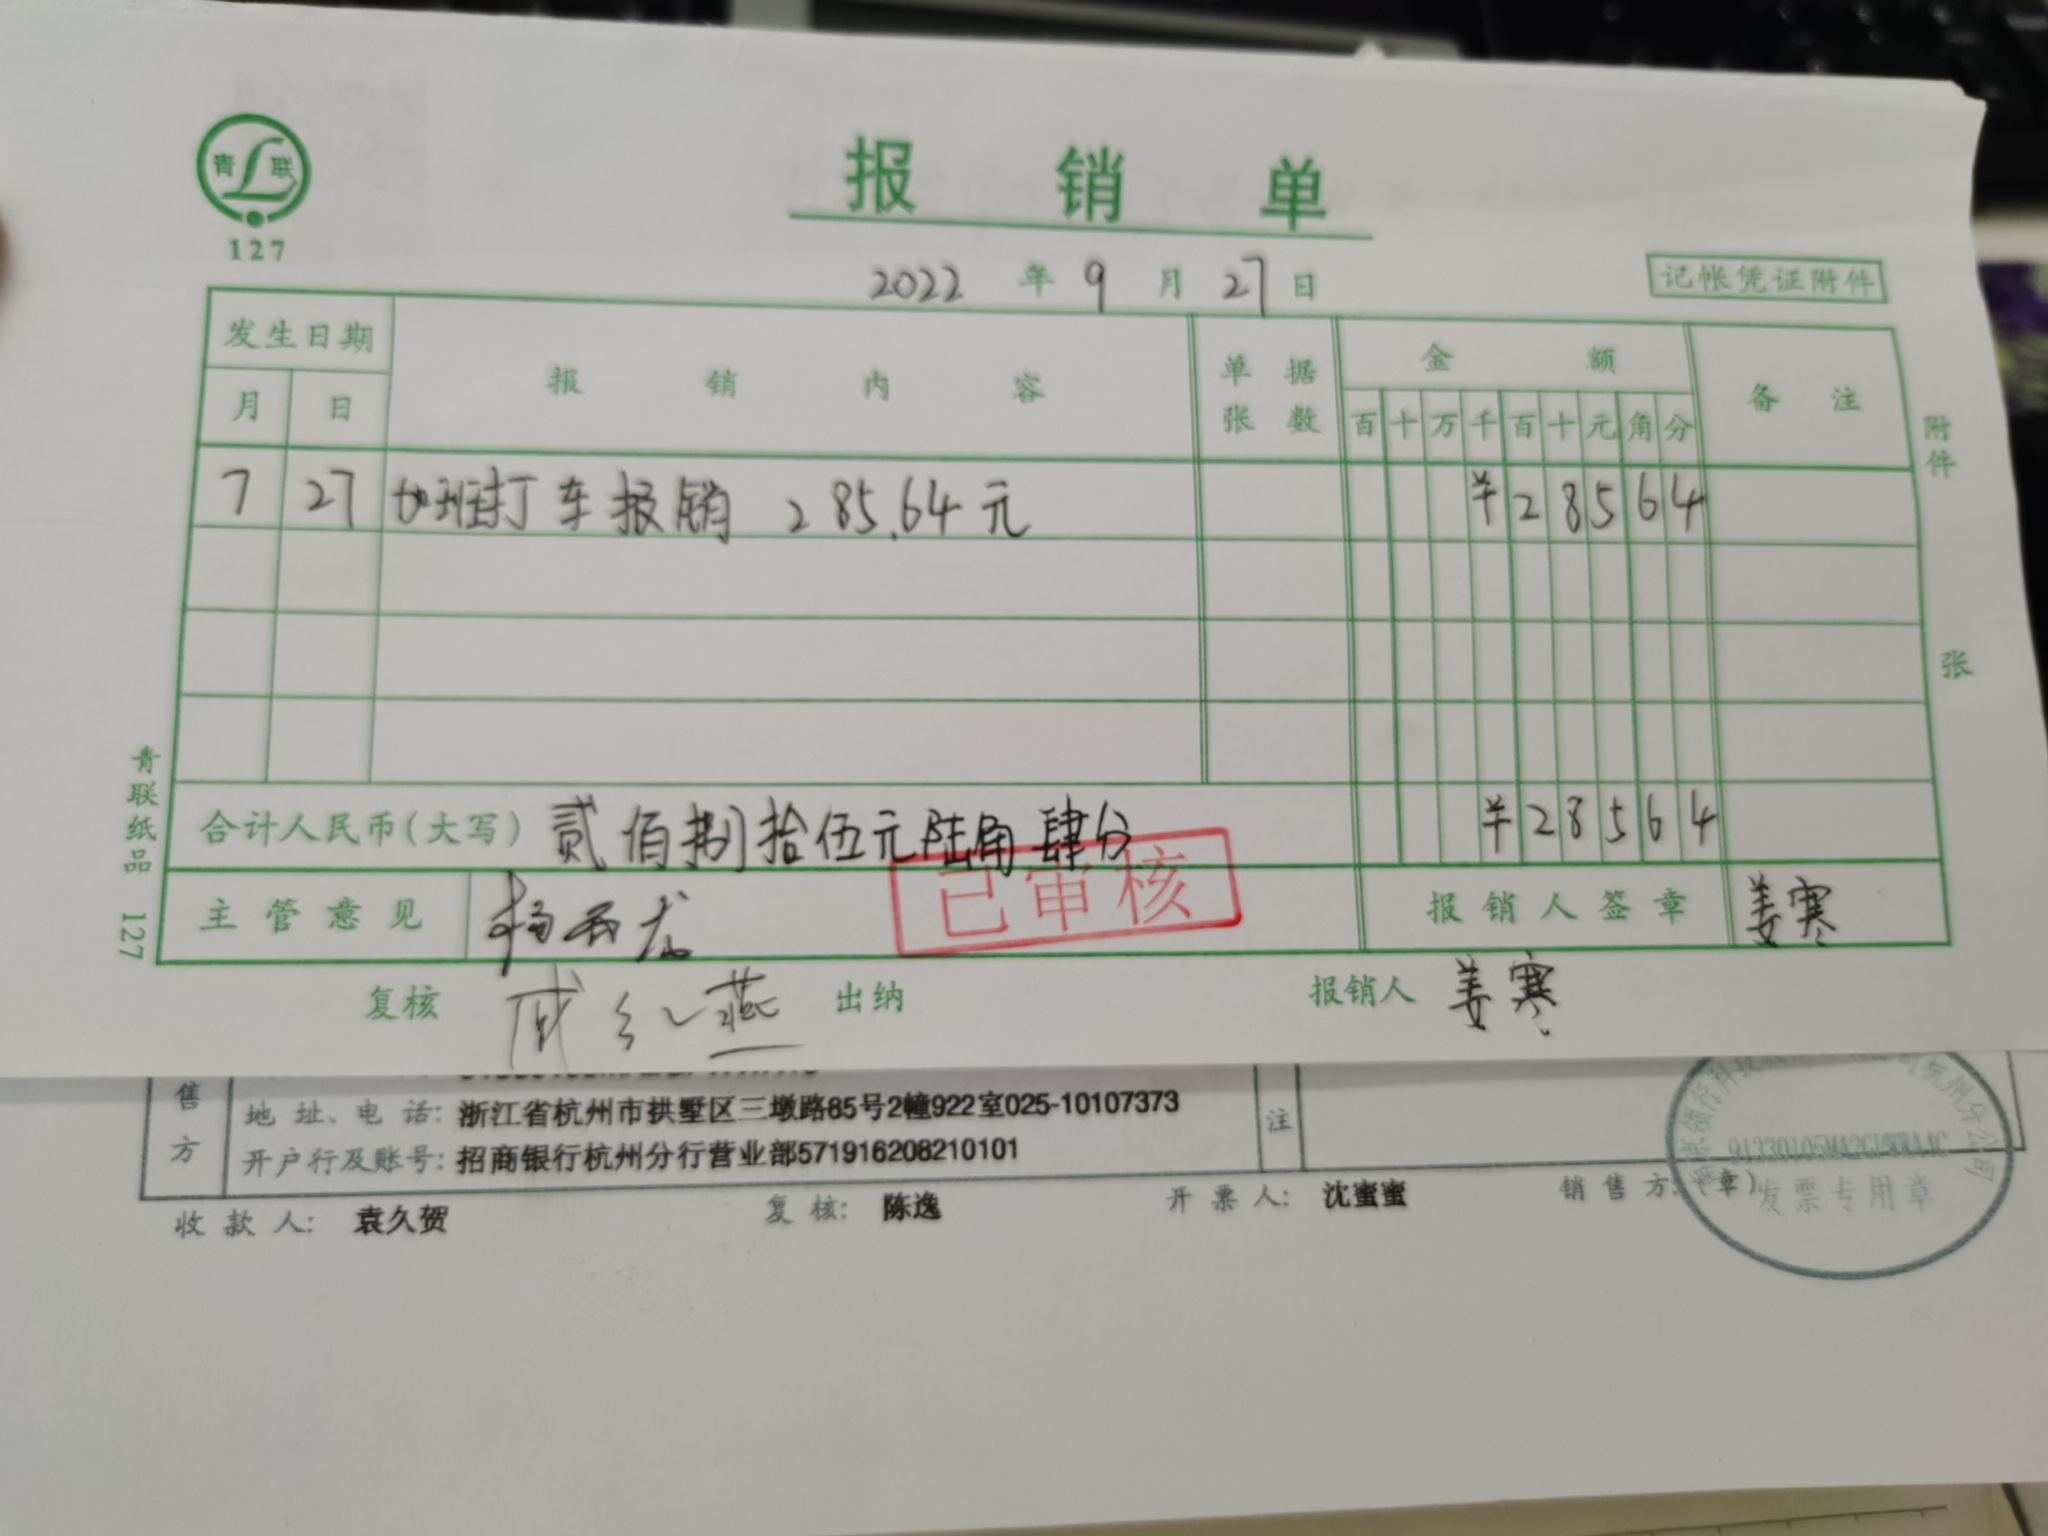 青 联
127
报 销 单
2022 年 9 月 27 日
记帐凭证附件
发生日期
月 日
报 销 内 容
单 据
张 数
金 额
百 十 万 千 百 十 元 角 分
备 注
附件
张
7 27 加班打车报销 285.64元 ¥28564
合计人民币(大写) 贰佰捌拾伍元陆角肆分 ¥28564
已审核
主管意见
报销人签章 姜寒
复核
出纳
报销人 姜寒
青联纸品 127
售方
地 址、电 话: 浙江省杭州市拱墅区三墩路85号2幢922室025-10107373
开户行及账号: 招商银行杭州分行营业部571916208210101
注
收 款 人: 袁久贺 复 核: 陈逸 开 票 人: 沈蜜蜜 销 售 方:(章)
发票专用章